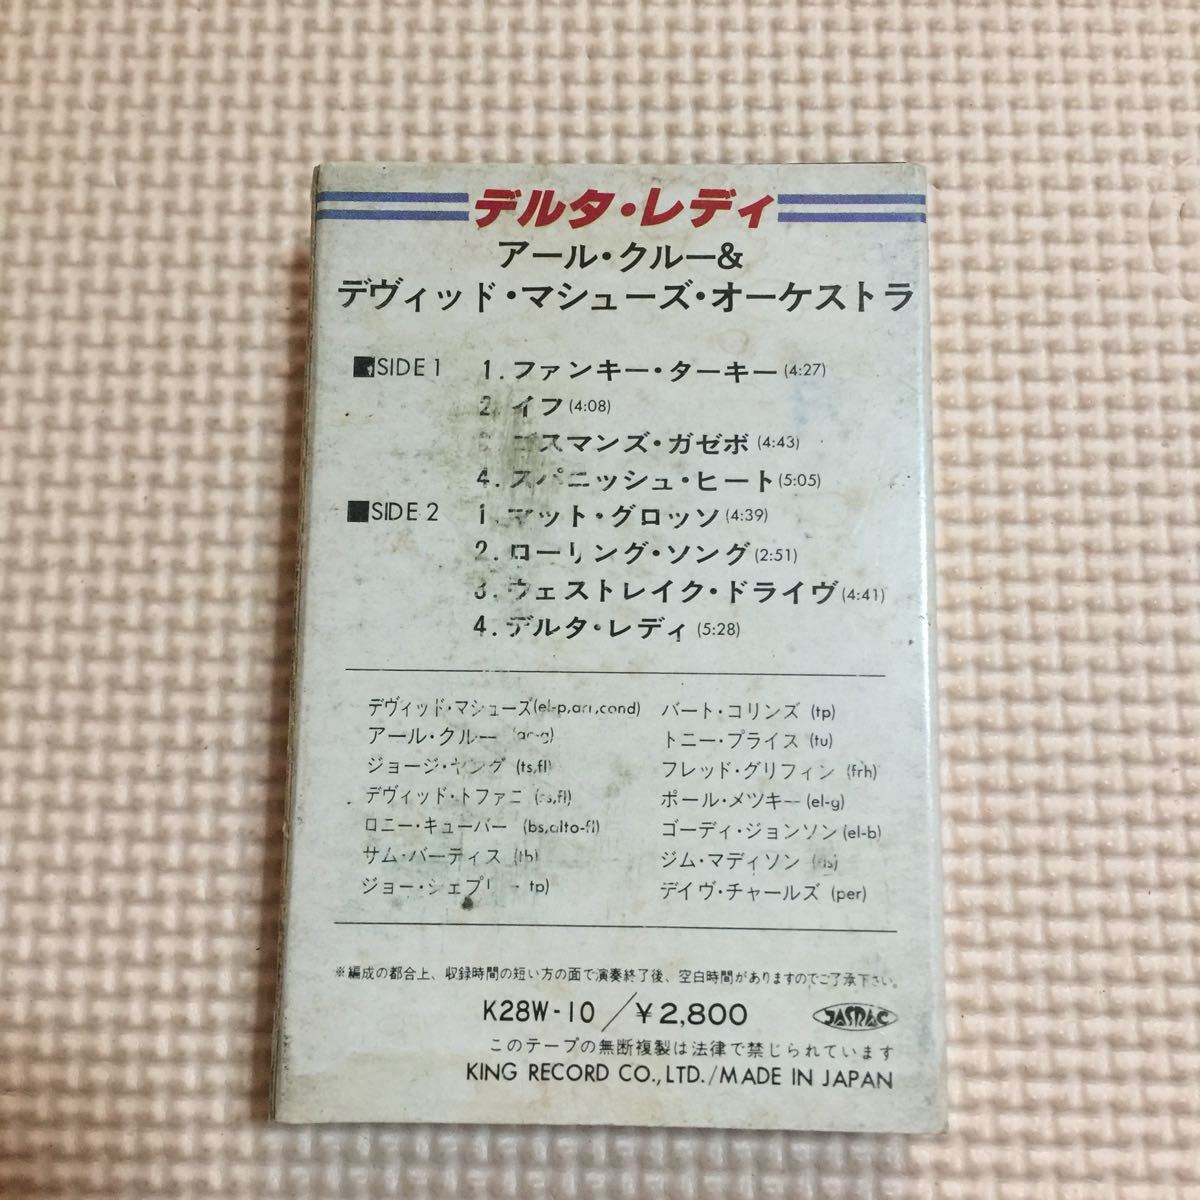 デルタ・レディ
アール・クルー&
デヴィッド・マシューズ・オーケストラ
■SIDE 1
1. ファンキー・ターキー (4:27)
2. イフ (4:08)
ゴスマンズ・ガゼボ (4:43)
4. スパニッシュ・ヒート (5:05)
■SIDE 2
1. マット・グロッソ (4:39)
2. ローリング・ソング (2:51)
3. ウェストレイク・ドライヴ (4:41)
4. デルタ・レディ (5:28)
デヴィッド・マシューズ(el-p,arr,cond)
アール・クルー
ジョージ・ヤング (ts,fl)
デヴィッド・トファニ
ロニー・キューバー (bs,alto-fl)
サム・バーティス (tb)
ジョー・シェプリー tp)
バート・コリンズ (tp)
トニー・プライス (tu)
フレッド・グリフィン (frh)
ポール・メツキー (el-g)
ゴーディ・ジョンソン (el-b)
ジム・マディソン
デイヴ・チャールズ (per)
※編成の都合上、収録時間の短い方の面で演奏終了後、空白時間がありますのでご了承下さい。
K28W-10／¥2,800
JASRAC
このテープの無断複製は法律で禁じられています
KING RECORD CO.,LTD./MADE IN JAPAN